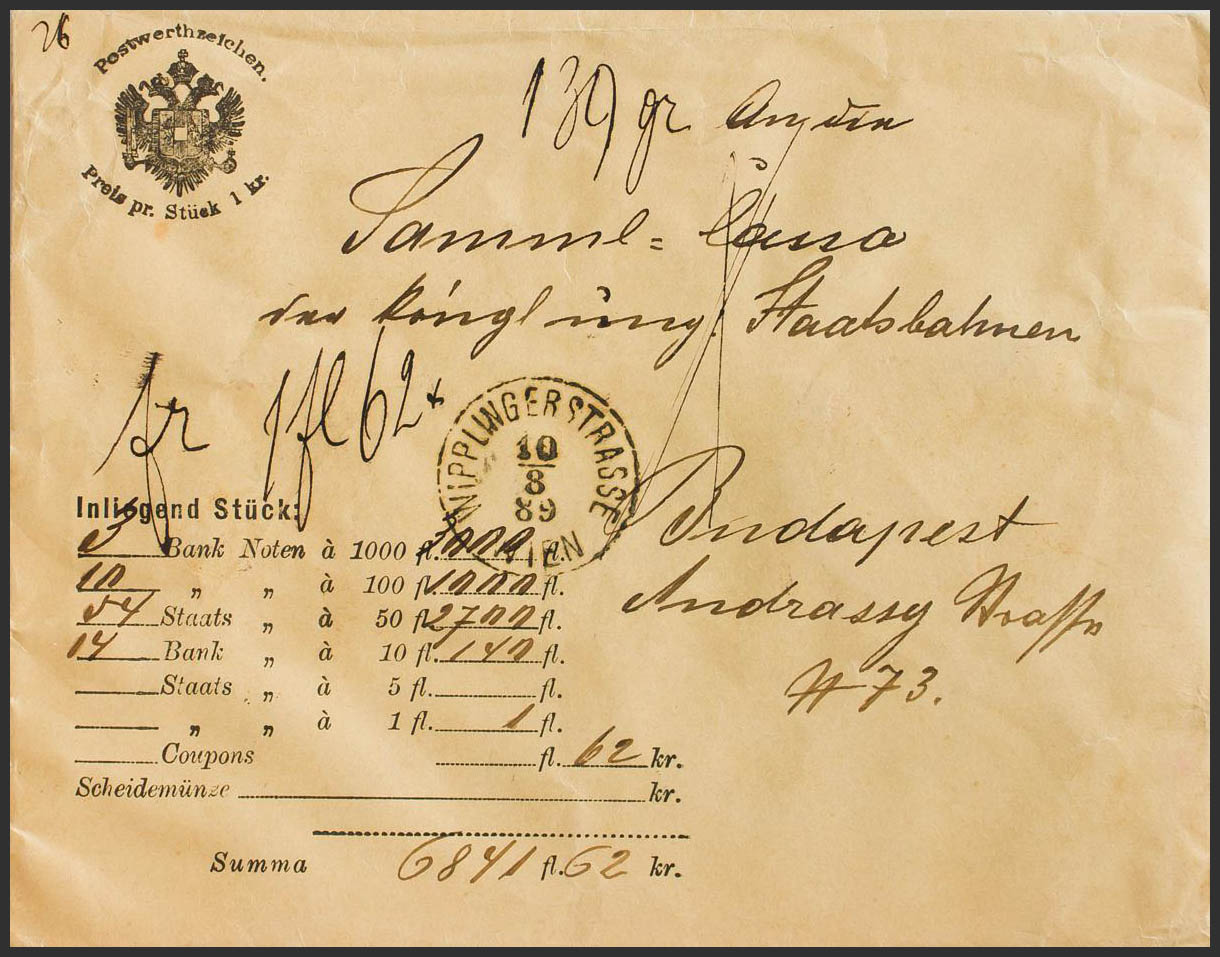 26
Postwerthzeichen.
Preis pr. Stück 1 kr.
139 gr An die
Samml= Cassa
der köngl ung. Staatsbahnen
fr 1 fl 62 x
WIPPLINGERSTRASSE
10
8
89
WIEN
Budapest
Andrassy Strasse
# 73.
Inliegend Stück:
3 Bank Noten à 1000 fl. 3000 fl.
10 „ „ à 100 fl. 1000 fl.
54 Staats „ à 50 fl. 2700 fl.
14 Bank „ à 10 fl. 140 fl.
Staats „ à 5 fl. fl.
„ „ à 1 fl. 1 fl.
Coupons fl. 62 kr.
Scheidemünze kr.
Summa 6841 fl. 62 kr.